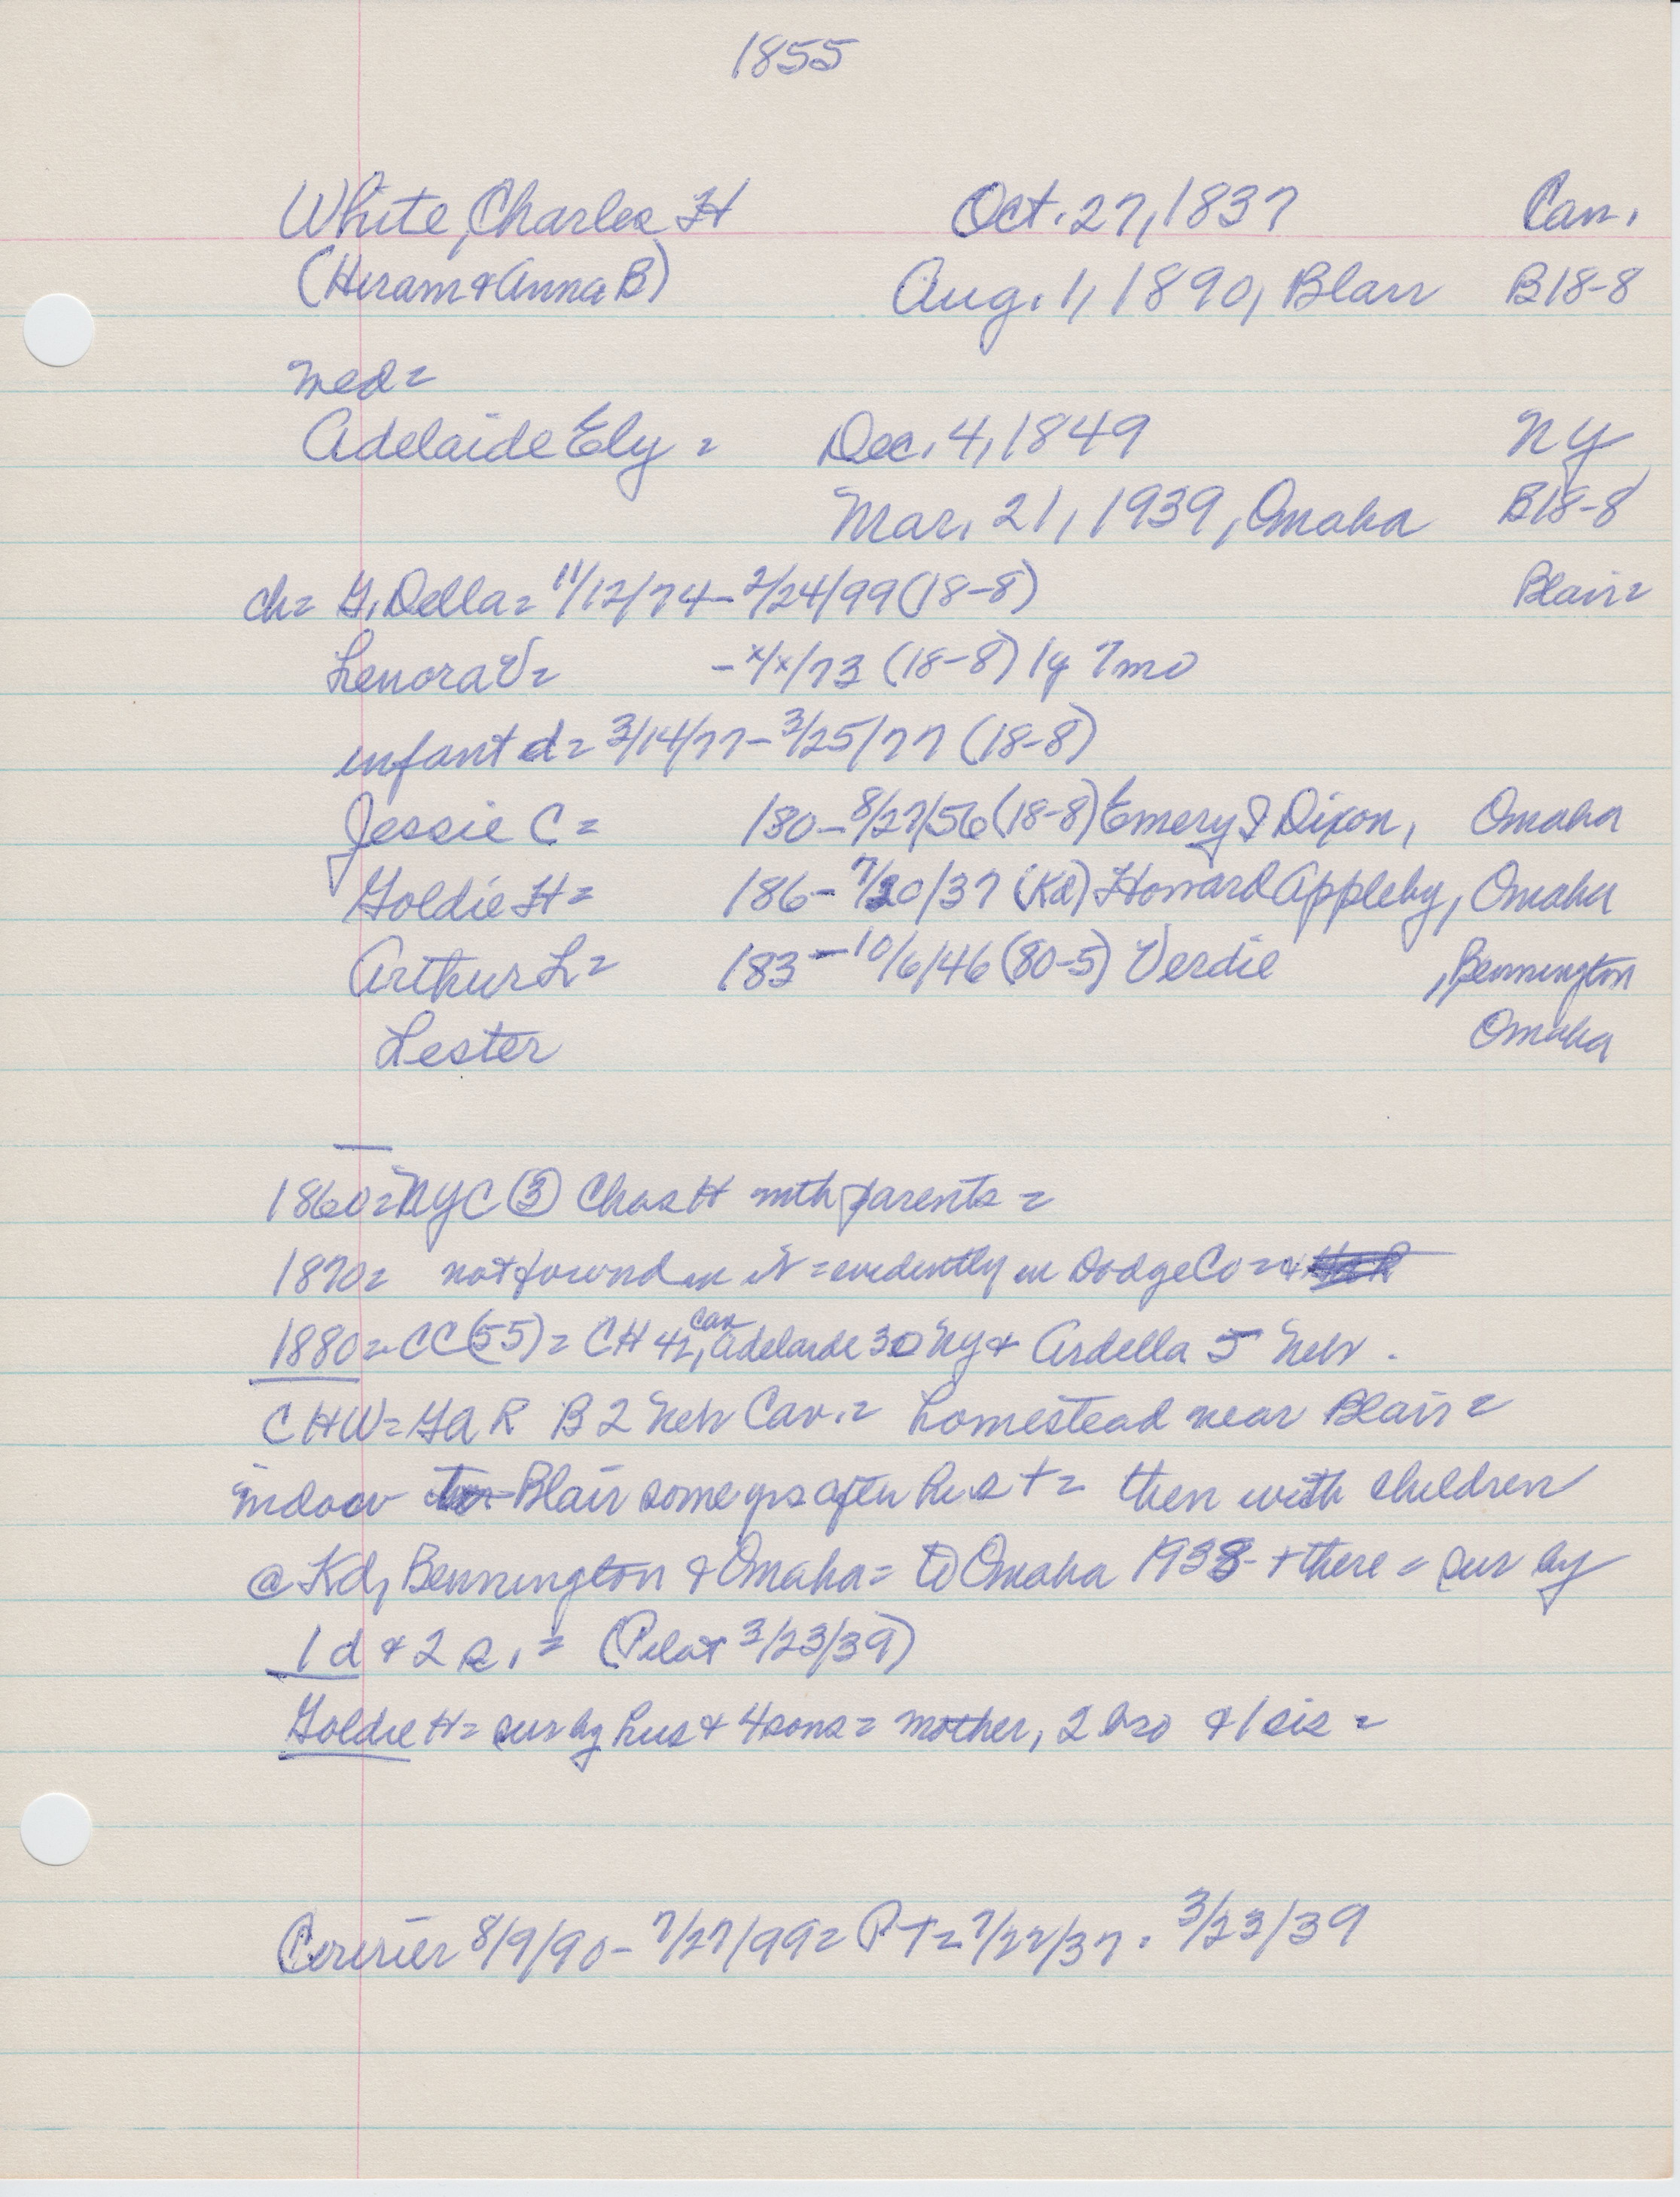 1855
White, Charles H Oct. 27, 1837 Can.
(Hiram & Anna B) Aug. 1, 1890, Blair B18-8
med =
Adelaide Ely = Dec. 4, 1849 NY
Mar. 21, 1939, Omaha B18-8
ch= G. Della = 11/12/74 - 2/24/99 (18-8) Blair =
Lenora V = - x/x/73 (18-8) 1y 7mo
infant d = 3/14/77 - 3/25/77 (18-8)
Jessie C = 180 - 8/27/56 (18-8) Emery & Dixon, Omaha
Goldie H = 186 - 7/20/37 (Kd) Howard Appleby, Omaha
Arthur L = 183 - 10/6/46 (80-5) Verdie , Bennington
Lester Omaha
1860 = NYC (3) Chas H with parents =
1870 = not found in it = evidently in Dodge Co = &
1880 = CC (55) = CH 42, Can Adelaide 30 NY & Ardella 5 Neb.
CHW = GAR B 2 Neb Cav. = homestead near Blair =
widow Blair some yrs after hus + = then with children
@ Kd, Bennington & Omaha = to Omaha 1938 - + there = sur by
1 d & 2 s. = (Pilot 3/23/39)
Goldie H = sur by hus & 4 sons = mother, 2 bro & 1 sis =
Courier 8/9/90 - 7/27/99 = PT = 7/22/37 . 3/23/39